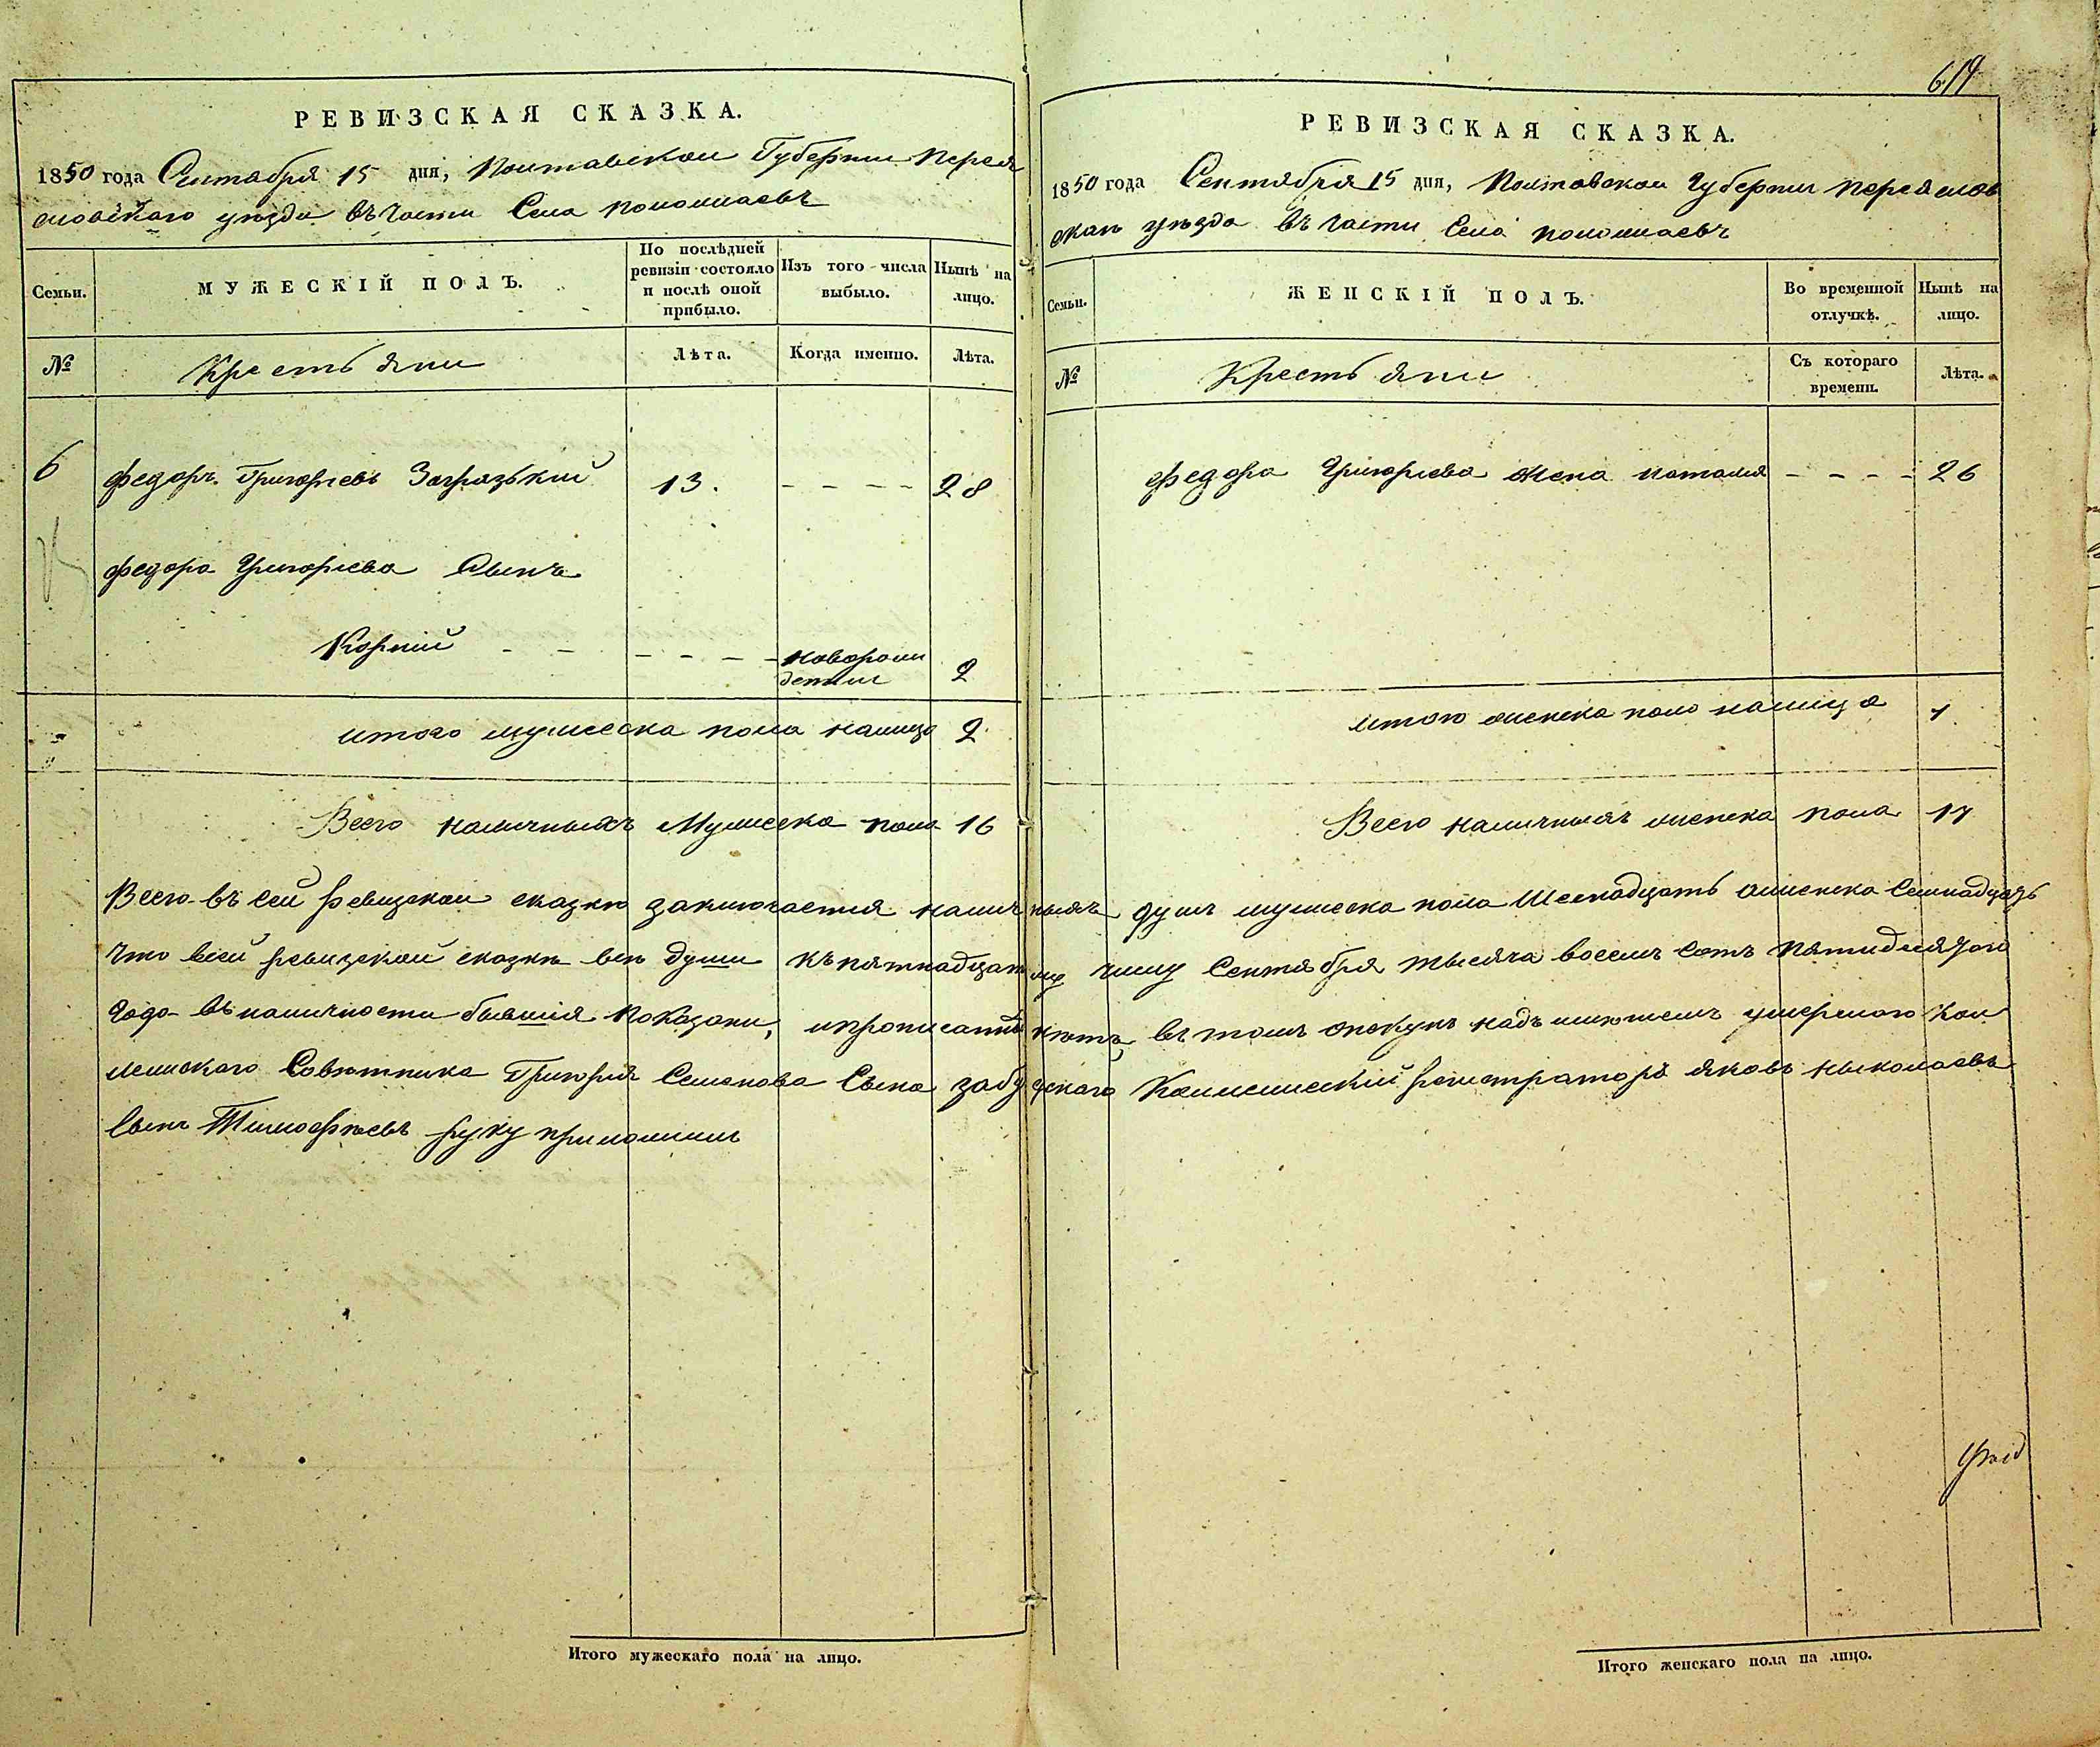 614
РЕВИЗСКАЯ СКАЗКА.
1850 года Сентября 15 дня, Полтавской Губернии Перея
словского уезда въ части Села Пологиаевъ
Семьи.
МУЖЕСКІЙ ПОЛЪ.
По послѣдней ревизіи состояло и послѣ оной прибыло.
Изъ того числа выбыло.
Нынѣ на лицо.
№
Крестьяни
Лѣта.
Когда именно.
Лѣта.
6
Федоръ Григорьевъ 13. - - - - 28
Федора Григорьева Сынъ
Корній - - - - - - новорож
денни 2
итого мужеска пола налицо 2
Всего наличныхъ Мужеска пола 16
РЕВИЗСКАЯ СКАЗКА.
1850 года Сентября 15 дня, Полтавской Губернии Переяслов
скаго уезда въ части Села
Семьи.
ЖЕНСКІЙ ПОЛЪ.
Во временной отлучкѣ.
Нынѣ на лицо.
№
Крестьяни
Съ котораго времени.
Лѣта.
Федора Григорьева жена Наталия - - - - 26
итого женска пола налицо 1
Всего наличныхъ женска пола 17
Всего въ сей ревизской сказкѣ заключается наличныхъ душъ мужеска пола Шеснадцать а женска Семнадцать
Что въ сей ревизской сказкѣ всѣ души къ пятнадцатому числу Сентября тысяча восемъ сотъ пятидесятого
года въ наличности бывшія показани, и прописаныхъ нѣтъ, въ томъ опекунъ надъ имѣниемъ умершого Кол
лежского Совѣтника Григорія Семенова Сына Забу Колежский регистраторъ Яковъ Николаевъ
Сынъ Тимофѣевъ руку приложилъ
Итого мужескаго пола на лицо.
Итого женскаго пола на лицо.